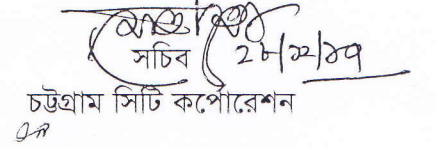 সচিব
২৮/১২/১৭
চট্টগ্রাম সিটি কর্পোরেশন